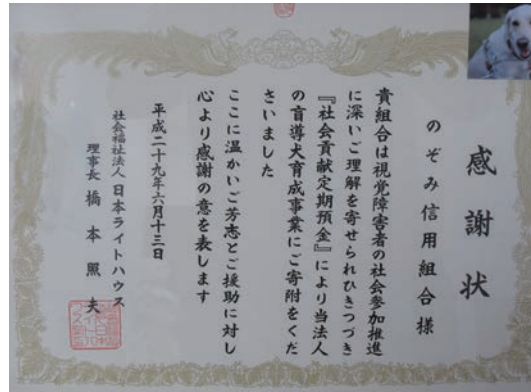 感謝状
のぞみ信用組合様
貴組合は視覚障害者の社会参加推進
に深いご理解を寄せられひきつづき
『社会貢献定期預金』により当法人
の盲導犬育成事業にご寄附をくだ
さいました
ここに温かいご芳志とご援助に対し
心より感謝の意を表します
平成二十九年六月十三日
社会福祉法人日本ライトハウス
理事長 橋本照夫